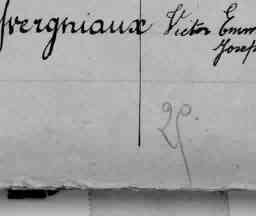 vergniaux Victor Emm
Josep
25.